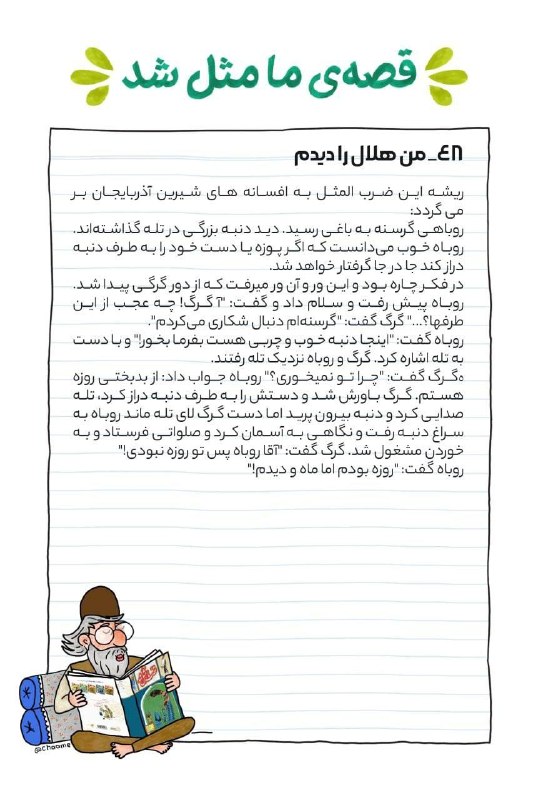 قصه‌ی ما مثل شد
٤٨_ من هلال را دیدم
ریشه این ضرب المثل به افسانه های شیرین آذربایجان بر
می گردد:
روباهی گرسنه به باغی رسید. دید دنبه بزرگی در تله گذاشته‌اند.
روباه خوب می‌دانست که اگر پوزه یا دست خود را به طرف دنبه
دراز کند جا در جا گرفتار خواهد شد.
در فکر چاره بود و این ور و آن ور میرفت که از دور گرگی پیدا شد.
روباه پیش رفت و سلام داد و گفت: "آ گرگ! چه عجب از این
طرفها؟..." گرگ گفت: "گرسنه‌ام دنبال شکاری می‌کردم".
روباه گفت: "اینجا دنبه خوب و چربی هست بفرما بخور!" و با دست
به تله اشاره کرد. گرگ و روباه نزدیک تله رفتند.
ه‌گرگ گفت: "چرا تو نمیخوری؟" روباه جواب داد: از بدبختی روزه
هستم. گرگ باورش شد و دستش را به طرف دنبه دراز کرد، تله
صدایی کرد و دنبه بیرون پرید اما دست گرگ لای تله ماند روباه به
سراغ دنبه رفت و نگاهی به آسمان کرد و صلواتی فرستاد و به
خوردن مشغول شد. گرگ گفت: "آقا روباه پس تو روزه نبودی!"
روباه گفت: "روزه بودم اما ماه و دیدم!"
@Choomg